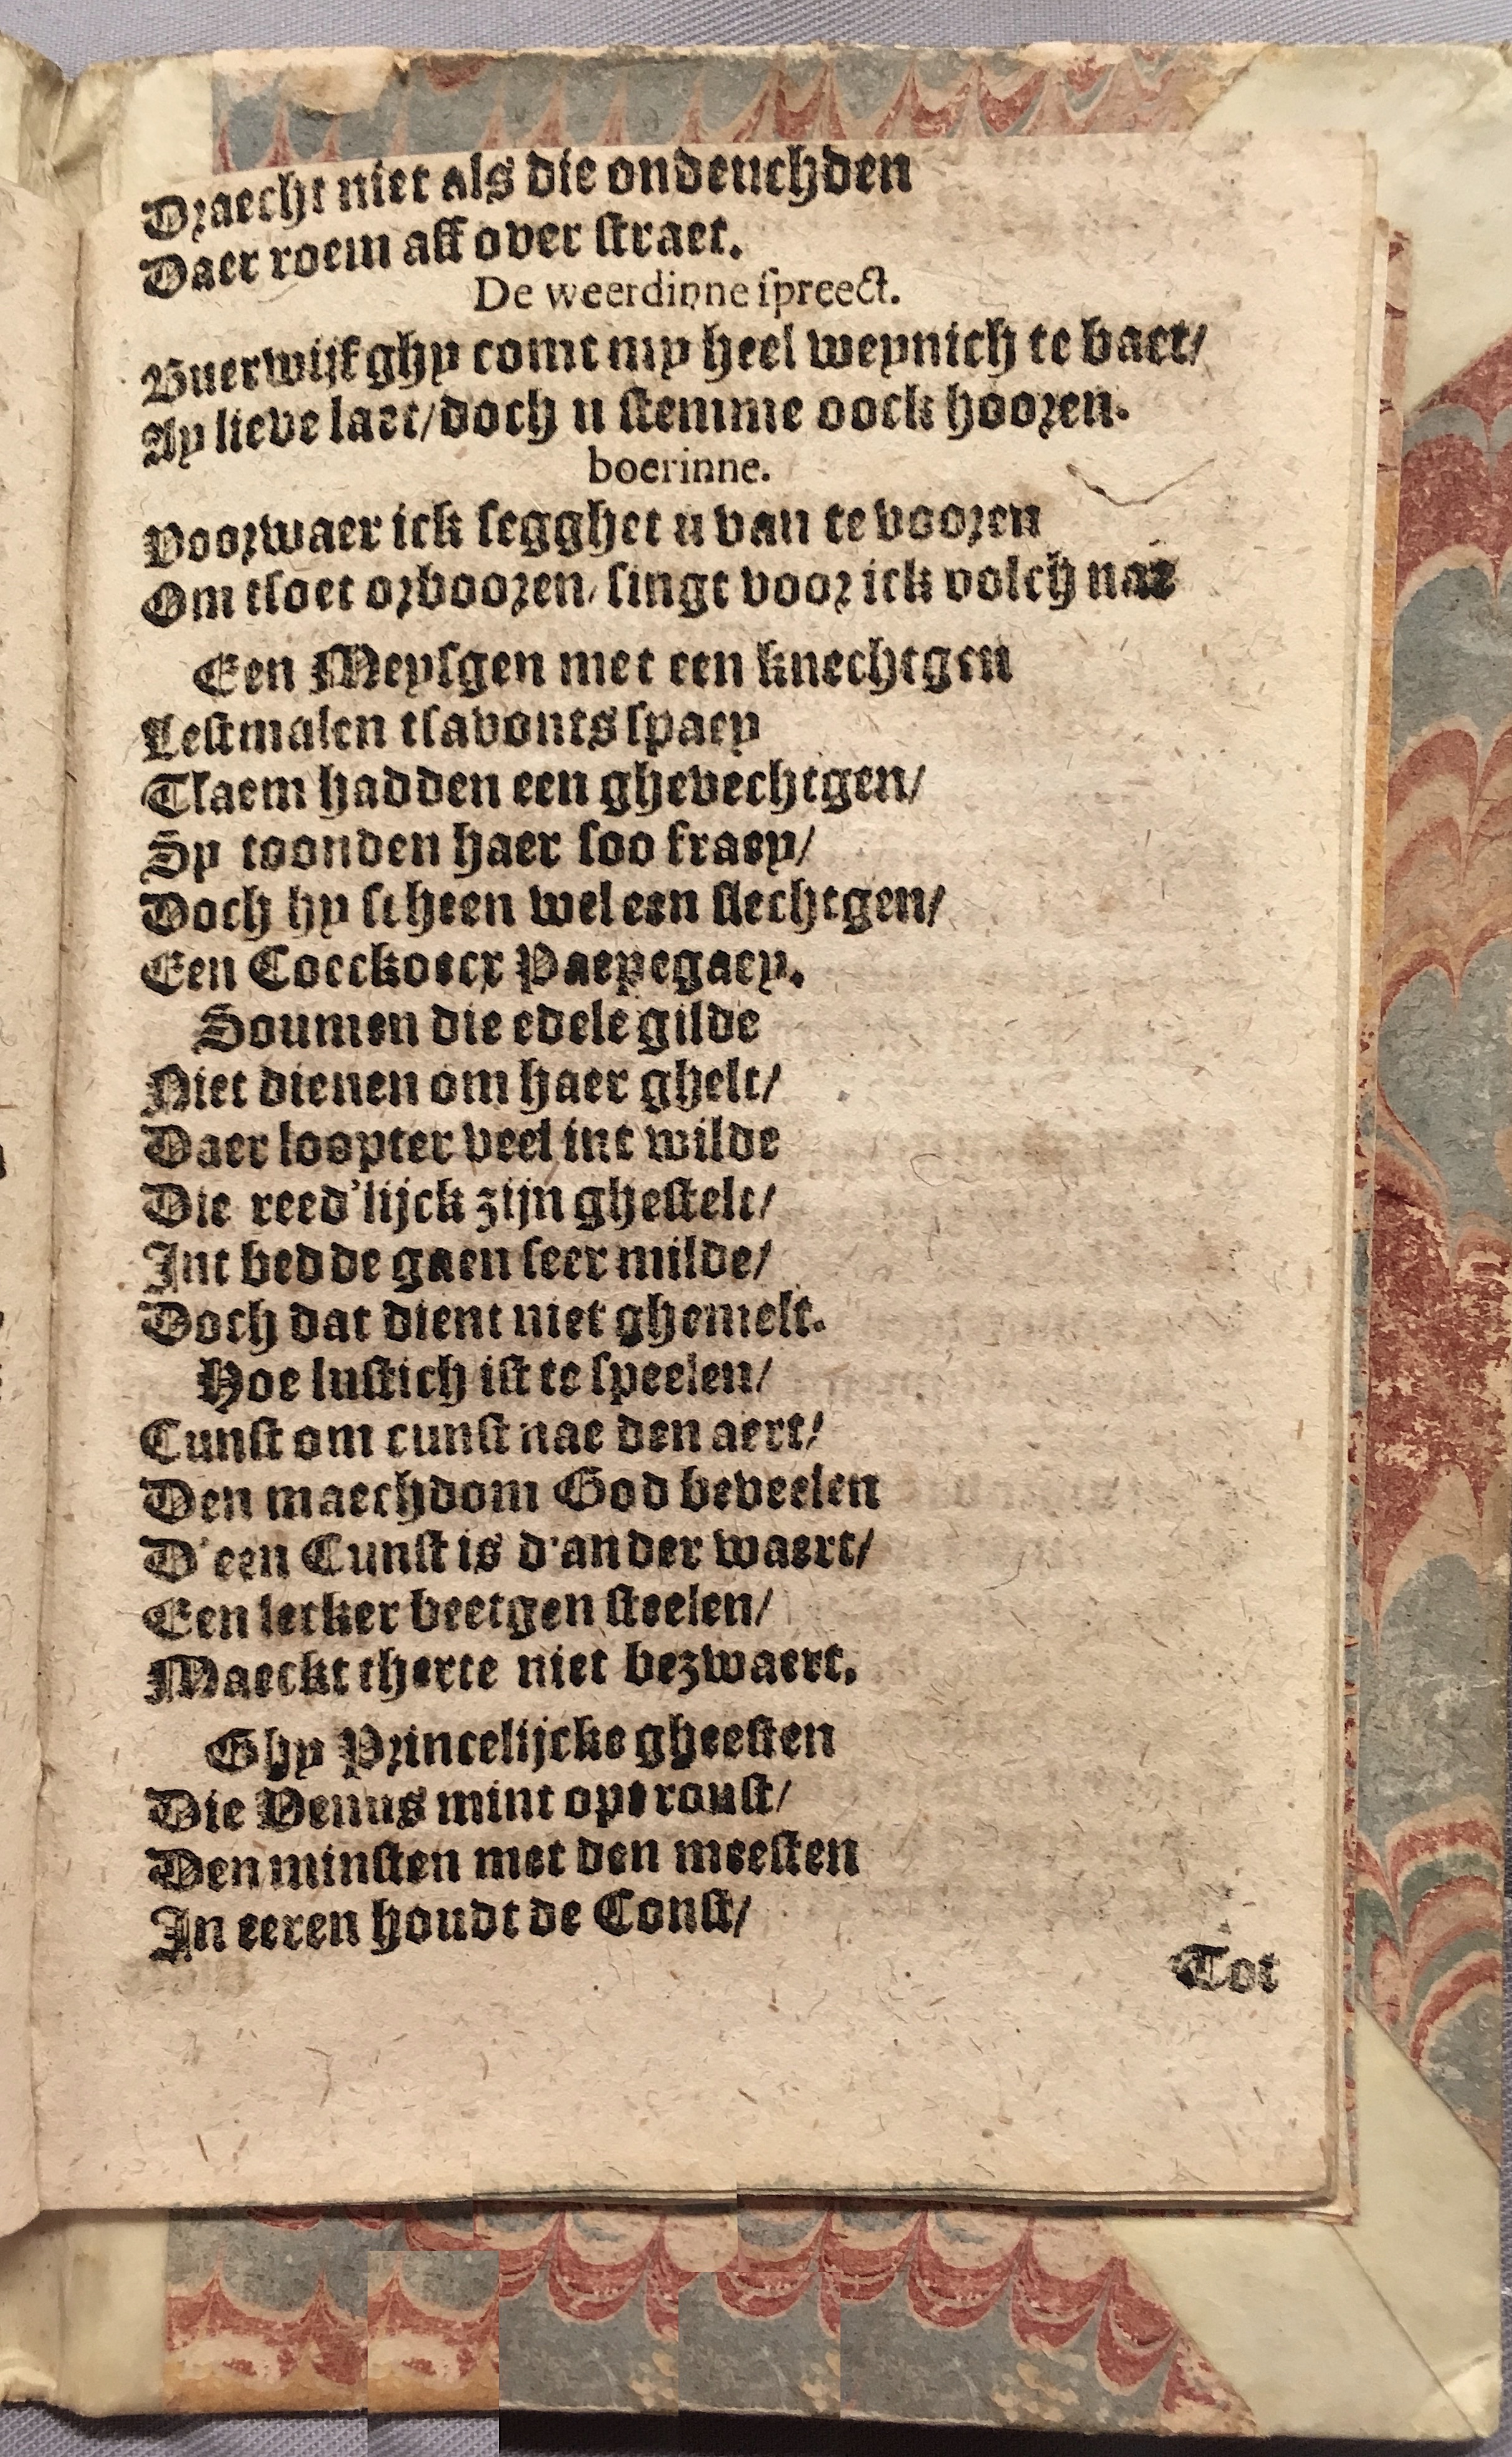 Draecht niet als die ondeuchden
Daer roem aff over straet.
De weerdinne spreect.
Buerwijf ghy comt my heel weynich te baet/
Ay lieve laet/doch u stemme oock hooren.
boerinne.
Voorwaer ick segghet u van te vooren
Om tsoet orbooren/ singt voor ick volch nae
Een Meysgen met een knechtgen
Lestmalen tsavonts spaey
Tsaem hadden een ghevechtgen/
Sy toonden haer soo fraey/
Doch hy scheen wel een slechtgen/
Een Coeckoecx Paepegaey.
Soumen die edele gilde
Niet dienen om haer ghelt/
Daer loopter veel int wilde
Die reed'lijck zijn ghestelt/
Int bedde gaen seer milde/
Doch dat dient niet ghemelt.
Hoe lustich ist te speelen/
Cunst om cunst nae den aert/
Den maechdom God beveelen
D'een Cunst is d'ander waert/
Een lecker beetgen steelen/
Maeckt therte niet bezwaert.
Ghy Princelijcke gheesten
Die Venus mint opt ronst/
Den minsten met den meesten
In eeren houdt de Const/
Tot